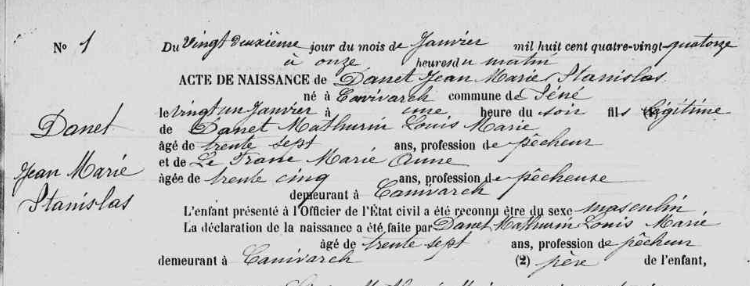 N° 1 Du Vingt deuxième jour du mois de Janvier mil huit cent quatre-vingt-quatorze
à onze heures du matin
ACTE DE NAISSANCE de Danet Jean Marie Stanislas
né à Canivarch commune de Séné
le vingt un Janvier à une heure du soir fils (1) légitime
de Danet Mathurin Louis Marie
âgé de trente sept ans, profession de pêcheur
et de Le Franc Marie Anne
âgée de trente cinq ans, profession de pêcheuse
demeurant à Canivarch
L'enfant présenté à l'Officier de l'État civil a été reconnu être du sexe masculin
La déclaration de la naissance a été faite par Danet Mathurin Louis Marie
âgé de trente sept ans, profession de pêcheur
demeurant à Canivarch (2) père de l'enfant,
Danet
Jean Marie
Stanislas